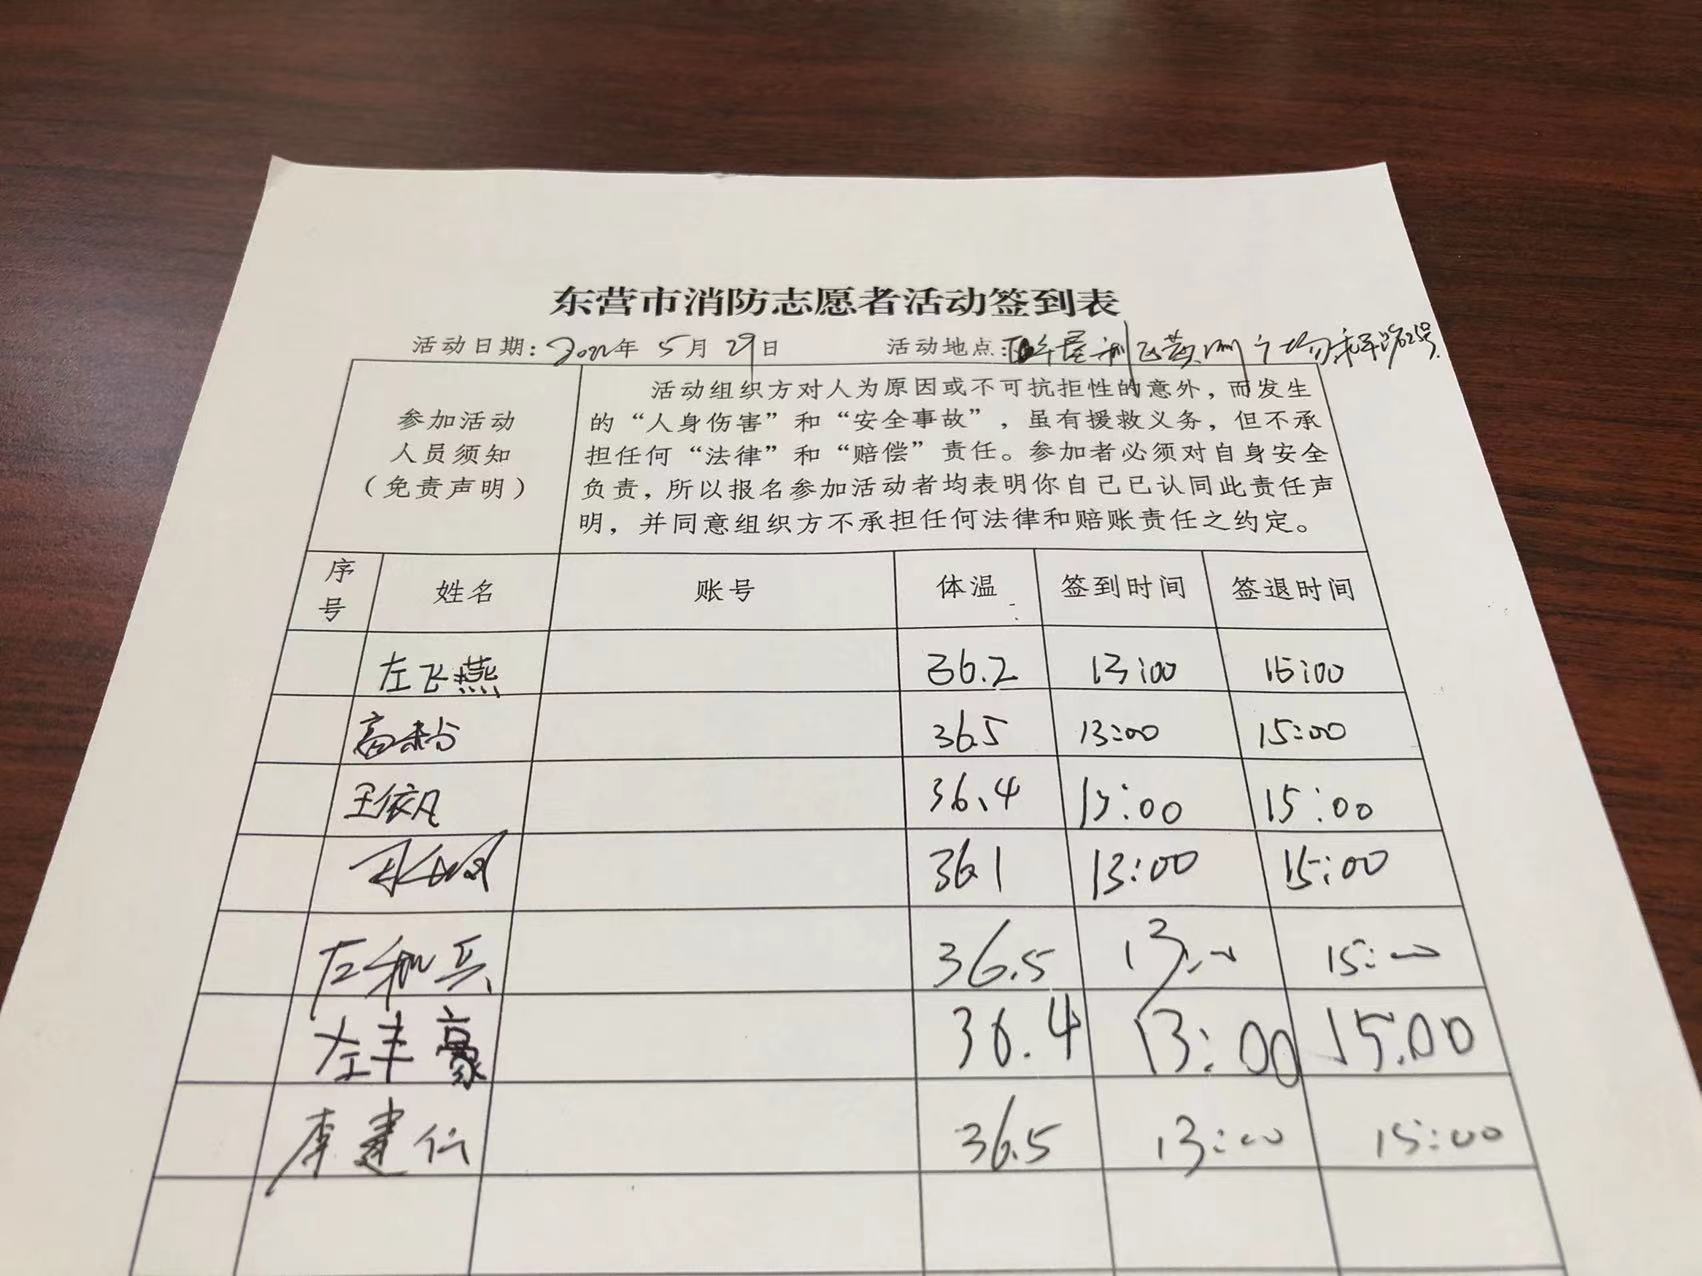 东营市消防志愿者活动签到表
活动日期：2022年 5月 29日 活动地点：
参加活动
人员须知
（免责声明）
活动组织方对人为原因或不可抗拒性的意外，而发生
的“人身伤害”和“安全事故”，虽有援救义务，但不承
担任何“法律”和“赔偿”责任。参加者必须对自身安全
负责，所以报名参加活动者均表明你自己已认同此责任声
明，并同意组织方不承担任何法律和赔账责任之约定。
序号 姓名 账号 体温 签到时间 签退时间
左飞燕 36.2 13:00 15:00
高 36.5 13:00 15:00
王依凡 36.4 13:00 15:00
36.1 13:00 15:00
左和兵 36.5 13:00 15:00
左丰豪 36.4 13:00 15.00
李建仁 36.5 13:00 15:00